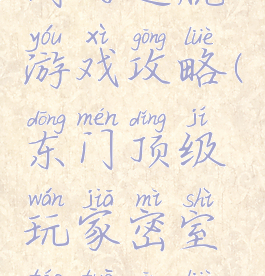 yóu xì gōng lüè
游戏攻略(
dōng mén dǐng jí
东门顶级
wán jiā mì shì
玩家密室